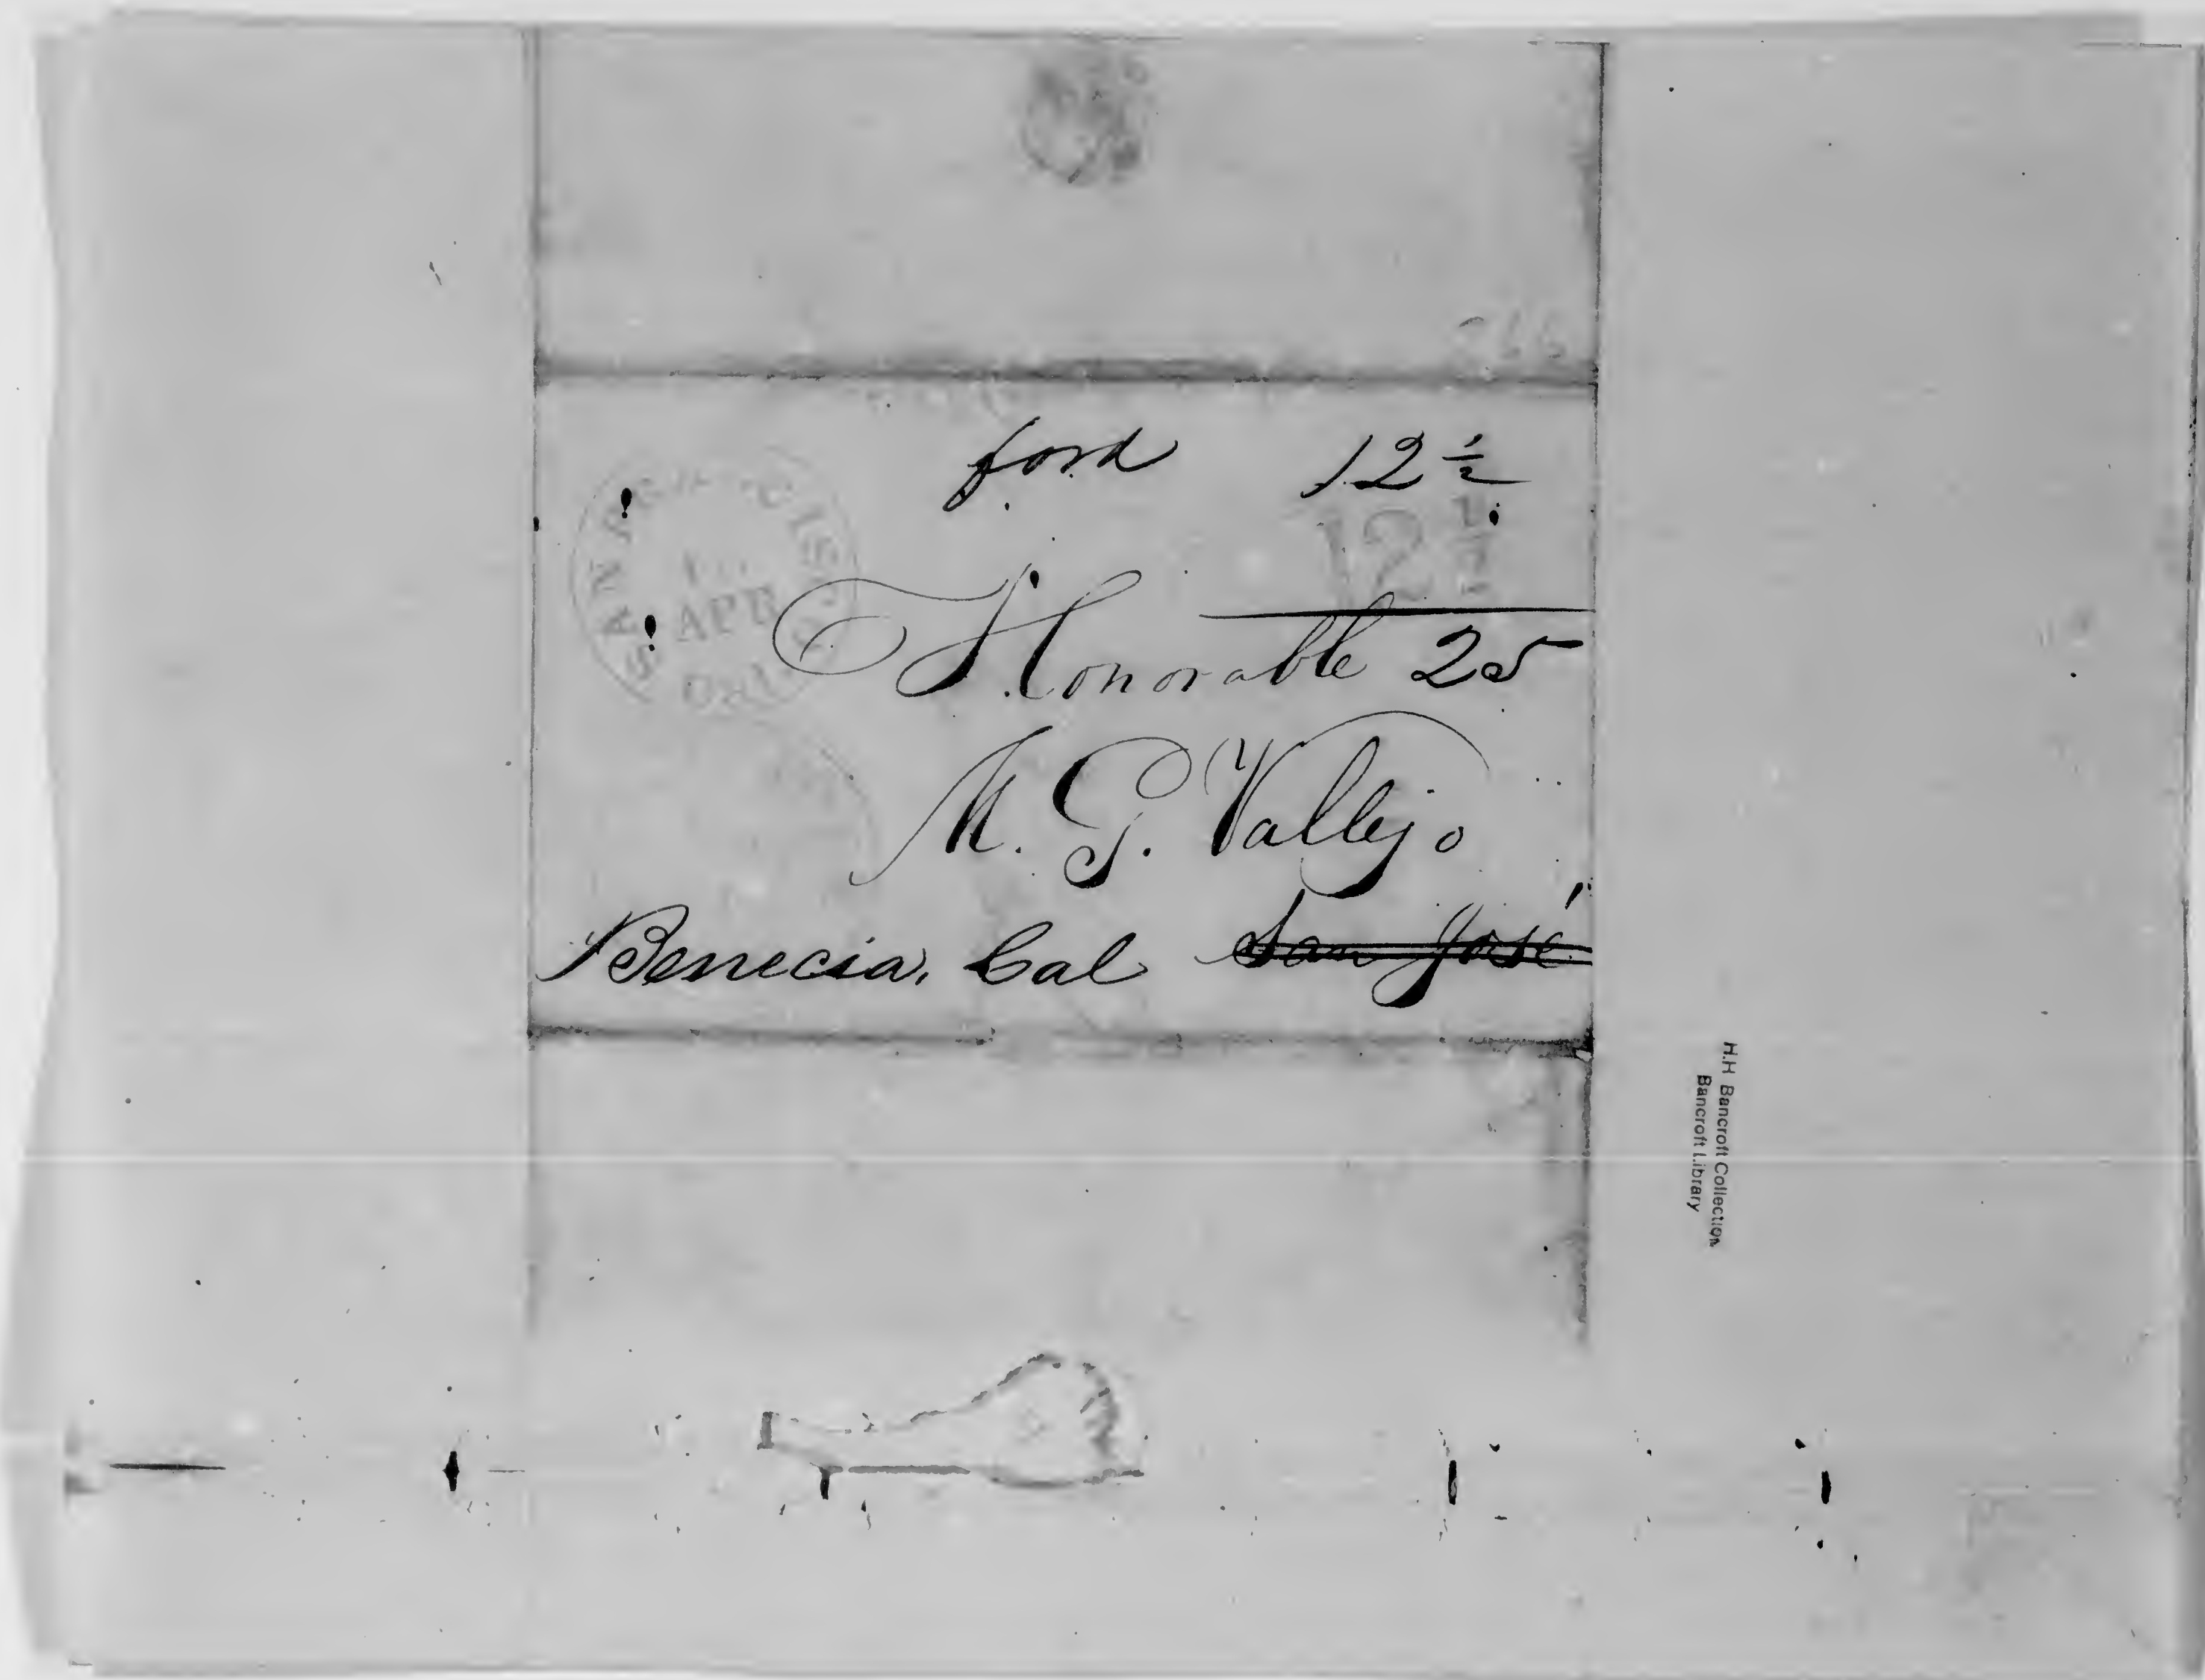 ford 12 ½
12 ½
SAN FRANCISCO
APR
Honorable 25
M. G. Vallejo
Benecia, Cal San José
H.H Bancroft Collection
Bancroft Library